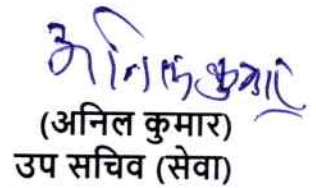 अनिल कुमार
(अनिल कुमार)
उप सचिव (सेवा)